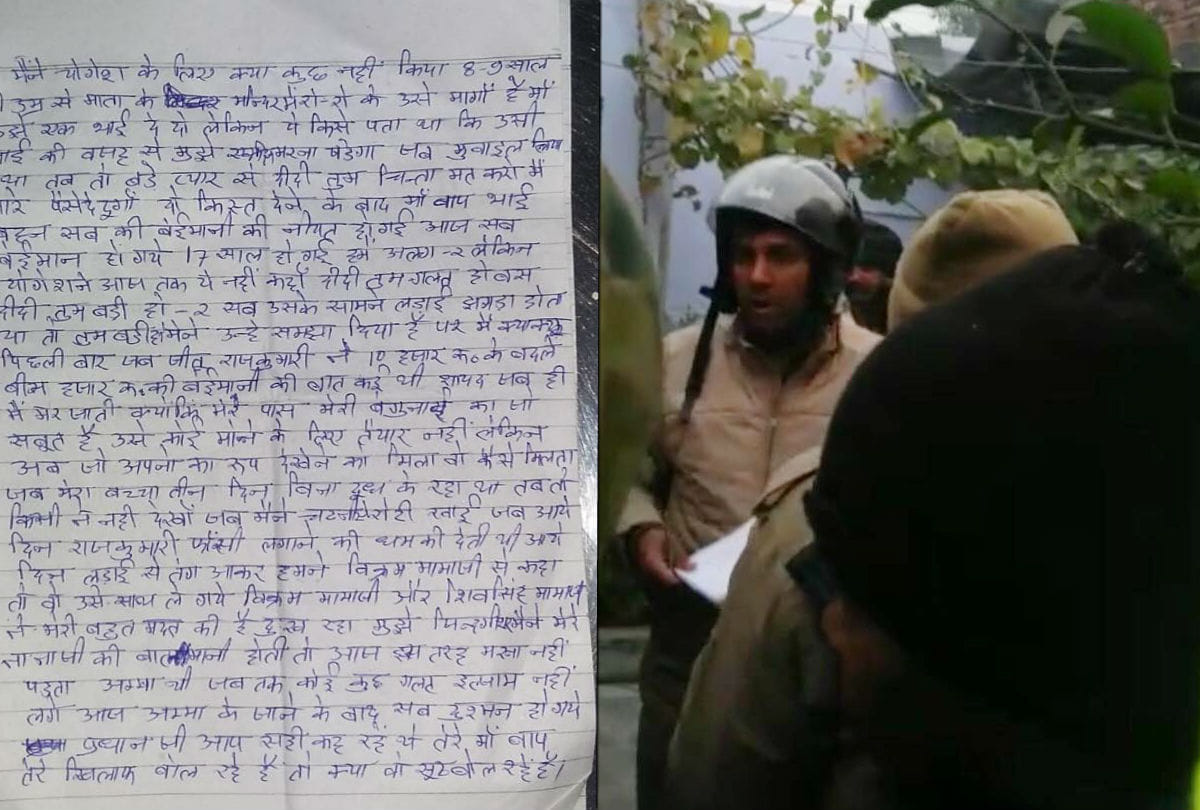 मैंने योगेश के लिए क्या कुछ नहीं किया 8-9 साल
उम्र से माता के मन्दिर में रो-रो के उसे मागाँ है माँ
एक भाई दे दो लेकिन ये किसे पता था कि उसी
भाई की वजह से मुझे पडेगा जब मुबाईल लिया
था तब तो बडे प्यार से दीदी तुम चिन्ता मत करो मैं
सारे पैसे दे दुगाँ दो किस्त देने के बाद माँ बाप भाई
बहन सब की बेईमानी की नीयत हो गई आज सब
बेईमान हो गये 17 साल हो गई हमें अलग-२ लेकिन
योगेश ने आज तक ये नहीं कहाँ दीदी तुम गलत हो बस
दीदी तुम बडी हो-२ सब उसके सामने लडाई झगडा होता
था तो तुम बडी हो मैंने उन्हे समझा दिया है पर मैं
पिछली बार जब जीतू राजकुमारी ने 10 हजार रू० के बदले
बीस हजार रू० की बेईमानी की बात कई थी शायद जब ही
मैं मर जाती क्योंकि मेरे पास मेरी बेगुनाई का जो
सबूत है उसे कोई मानने के लिए तैयार नहीं लेकिन
अब जो अपनो का रूप देखने को मिला वो कैसे मिलता
जब मेरा बच्चा तीन दिन बिना दुध के रहा था तब तो
किसी ने नही देखाँ जब मैंने रोटी खाई जब आये
दिन राजकुमारी फाँसी लगाने की धमकी देती थी आये
दिन लडाई से तंग आकर हमने विक्रम मामाजी से कहा
तो वो उसे साथ ले गये विक्रम मामाजी और शिवसिंह मामाजी
ने मेरी बहुत मदद की है दुःख रहा मुझे मैंने मेरे
नानाजी की बात मानी होती तो आज इस तरह मरना नहीं
पडता अम्मा थी जब तक कोई कुछ गलत इल्जाम नहीं
लगे आज अम्मा के जाने के बाद सब दुश्मन हो गये
प्रधान जी आप सही कह रहे थे तेरे माँ बाप
तेरे खिलाफ बोल रहे है तो क्या वो झुठ बोल रहे है।